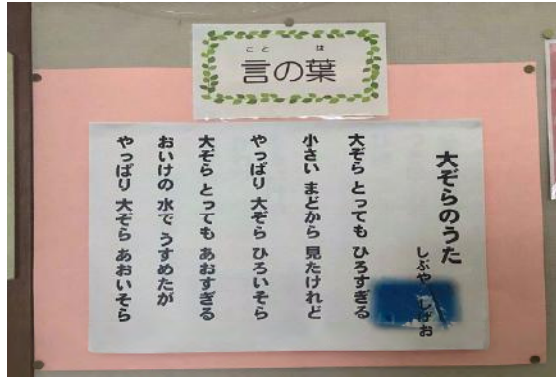 こと は
言の葉
大ぞらのうた
しぶや しげお
大ぞら とっても ひろすぎる
小さい まどから 見たけれど
やっぱり 大ぞら ひろいそら
大ぞら とっても あおすぎる
おいけの 水で うすめたが
やっぱり 大ぞら あおいそら